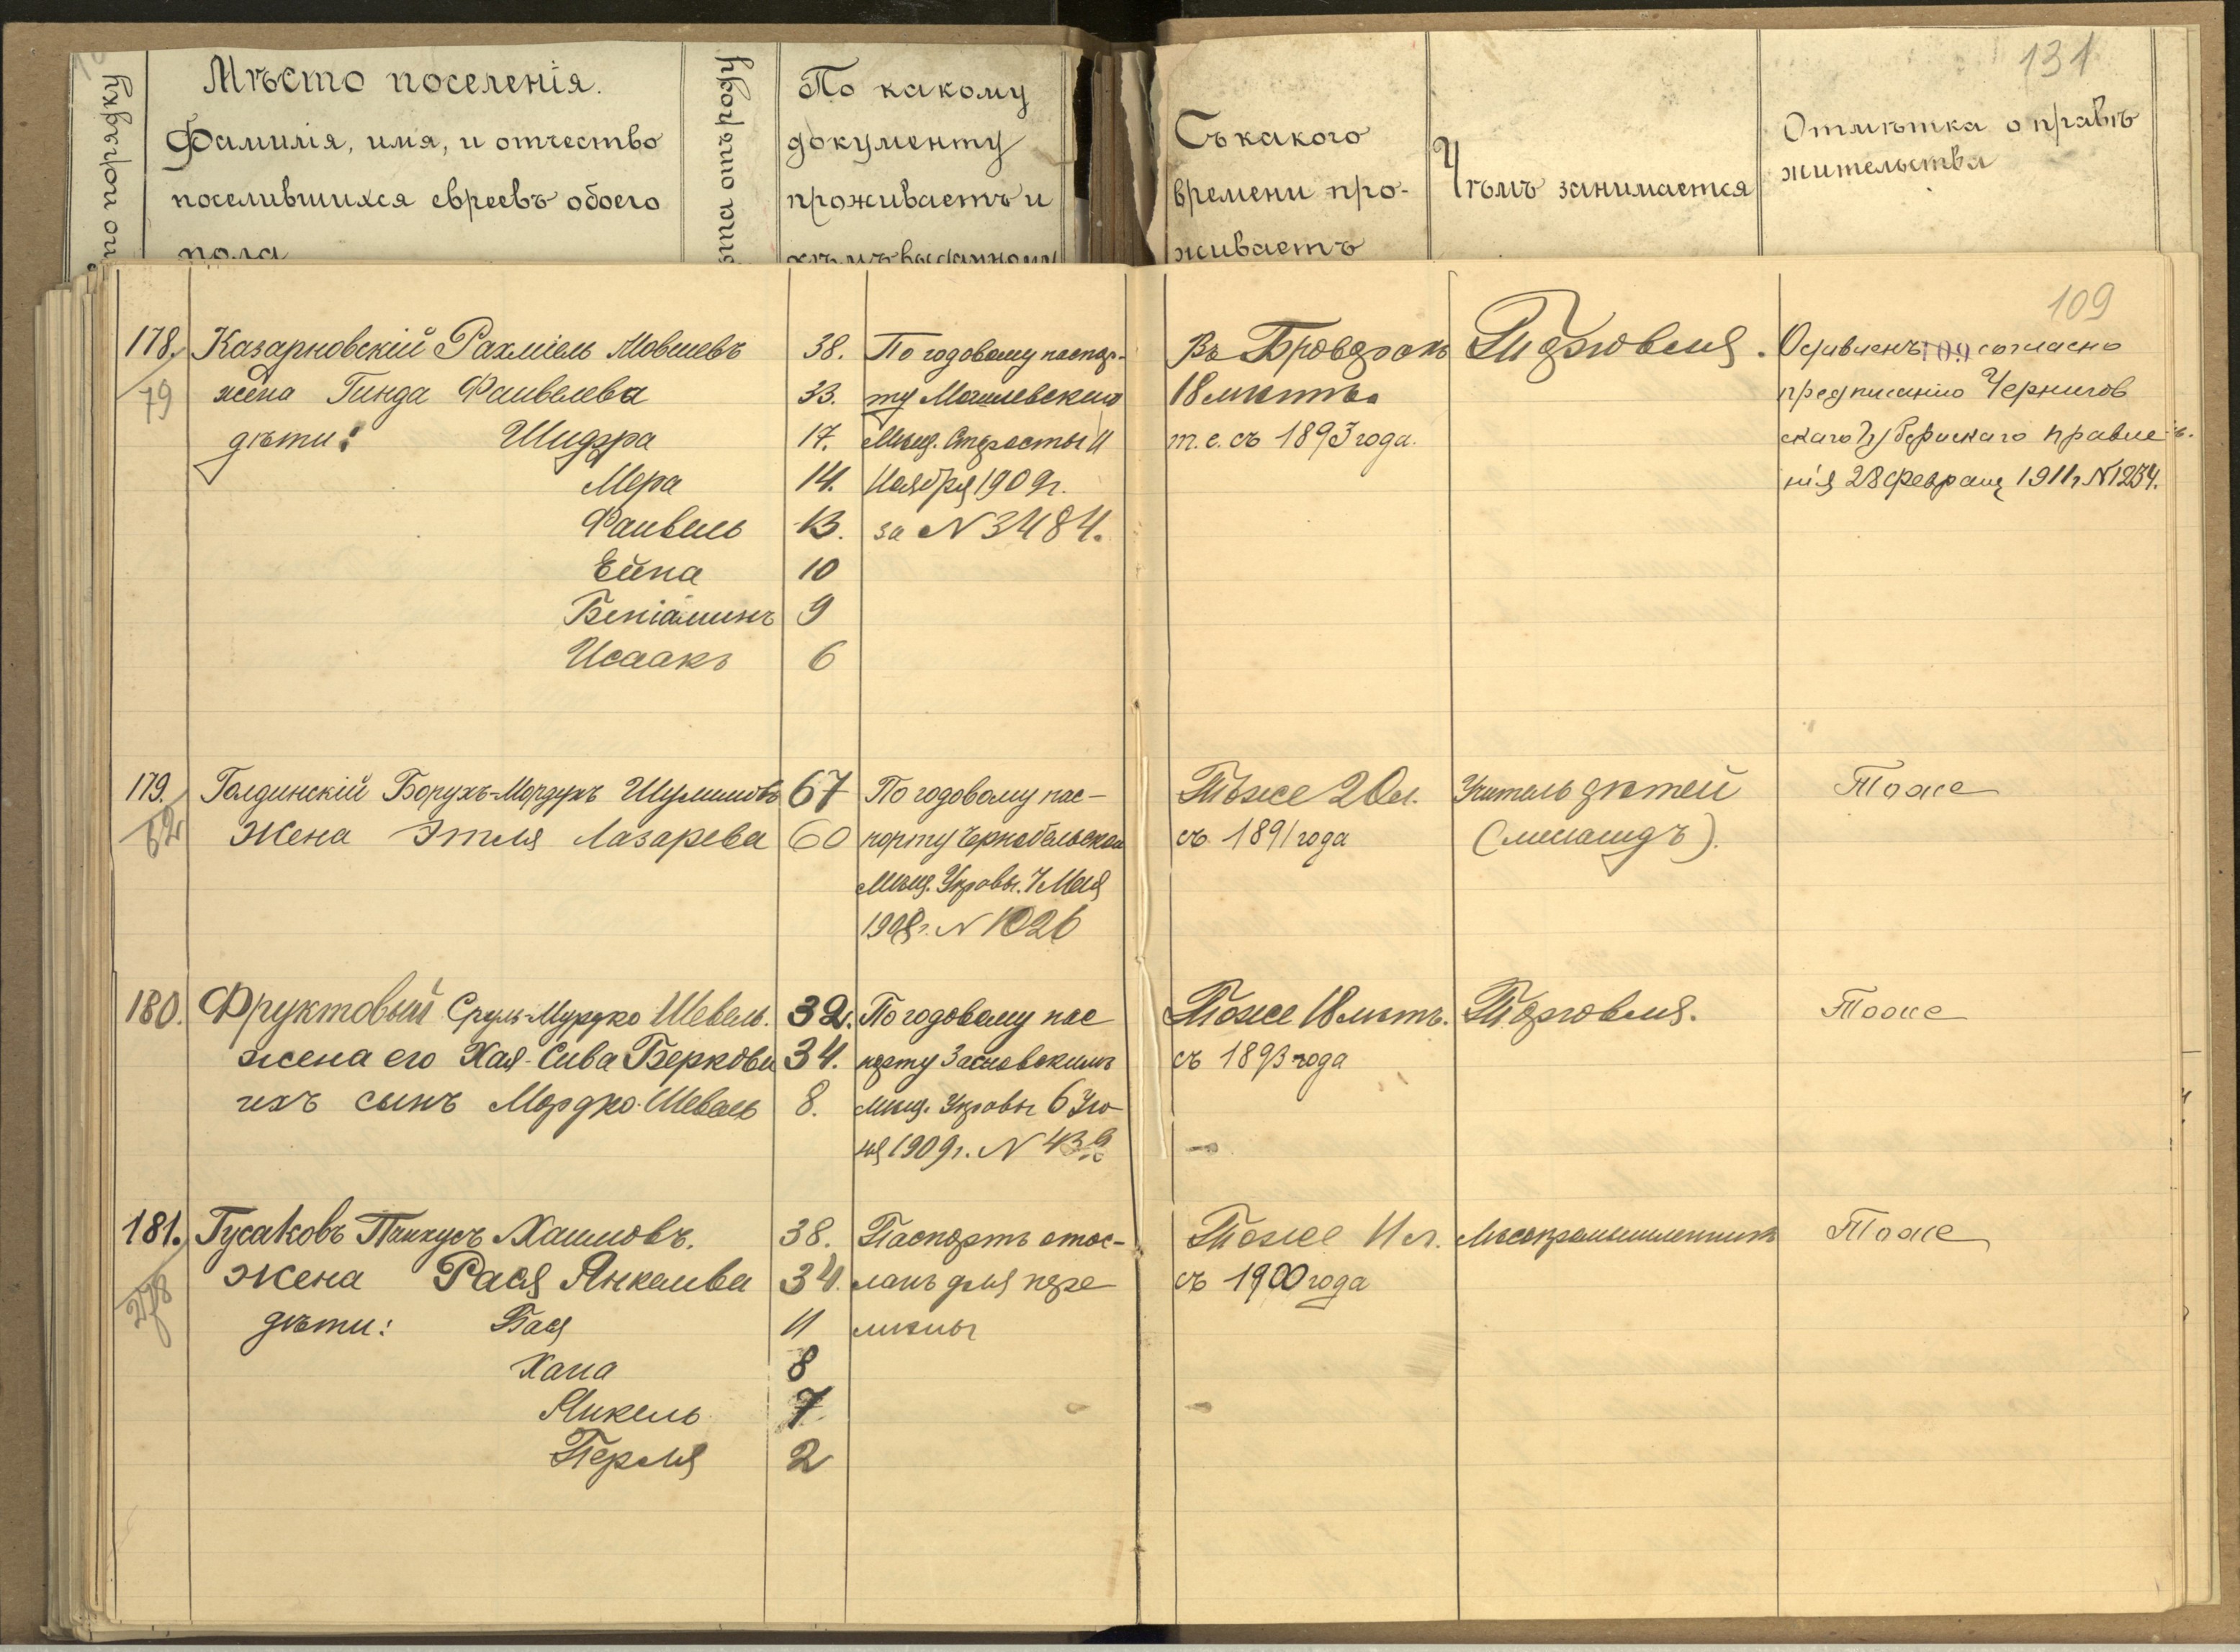 по порядку
Мѣсто поселенія.
Фамилія, имя, и отчество
поселившихся евреевъ обоего
пола
ѣта отъ роду
По какому
документу
проживаетъ и
кѣмъ выданному
Съ какого
времени про-
живаетъ
Чѣмъ занимается
131
Отмѣтка о правѣ
жительства
109
178.
79
Казарновскій Рахміель Мовшевъ 38.
жена Гинда Фаивелева 33.
дѣти: Шидра 17.
Мера 14.
Фаивель 13.
Ейна 10
Беніаминъ 9
Исаакъ 6
По годовому паспор-
ту Могилевскимъ
Мѣщ. Старосты 11
Ноября 1909 г.
за N 3484.
Въ Броварахъ
18 лѣтъ
т.е. съ 1893 года.
Торговля.
Оставленъ 109 согласно
предписанію Чернигов
скаго Губернскаго Правле-
нія 28 февраля 1911 г N 1234.
179.
62
Голдинскій Борухъ-Мордухъ 67
Жена Этля Лазарева 60
По годовому пас-
порту Чернобыльской
Мѣщ. Управы. 7 Мая
1908 г. N 1026
Тоже 20 л.
съ 1891 года
Учитель дѣтей
(меламедъ).
Тоже
180.
Фруктовый Сруль-Мордко Шевель. 32.
жена его Хая-Сива Беркова 34.
ихъ сынъ Мордко-Шевель 8.
По годовому пас
порту
Мѣщ. Управы 6 Ію-
ня 1909 г. N
Тоже 18 лѣтъ.
съ 1893 года
Торговля.
Тоже
181.
278
Гусаковъ Пинхусъ Хаимовъ. 38.
Жена Рася Янкелева 34.
дѣти: Бася 11
Хана 8
Янкель 7
Перля 2
Паспортъ отос-
ланъ для пере
мѣны
Тоже 11 л.
съ 1900 года
Лѣсопромышленникъ
Тоже